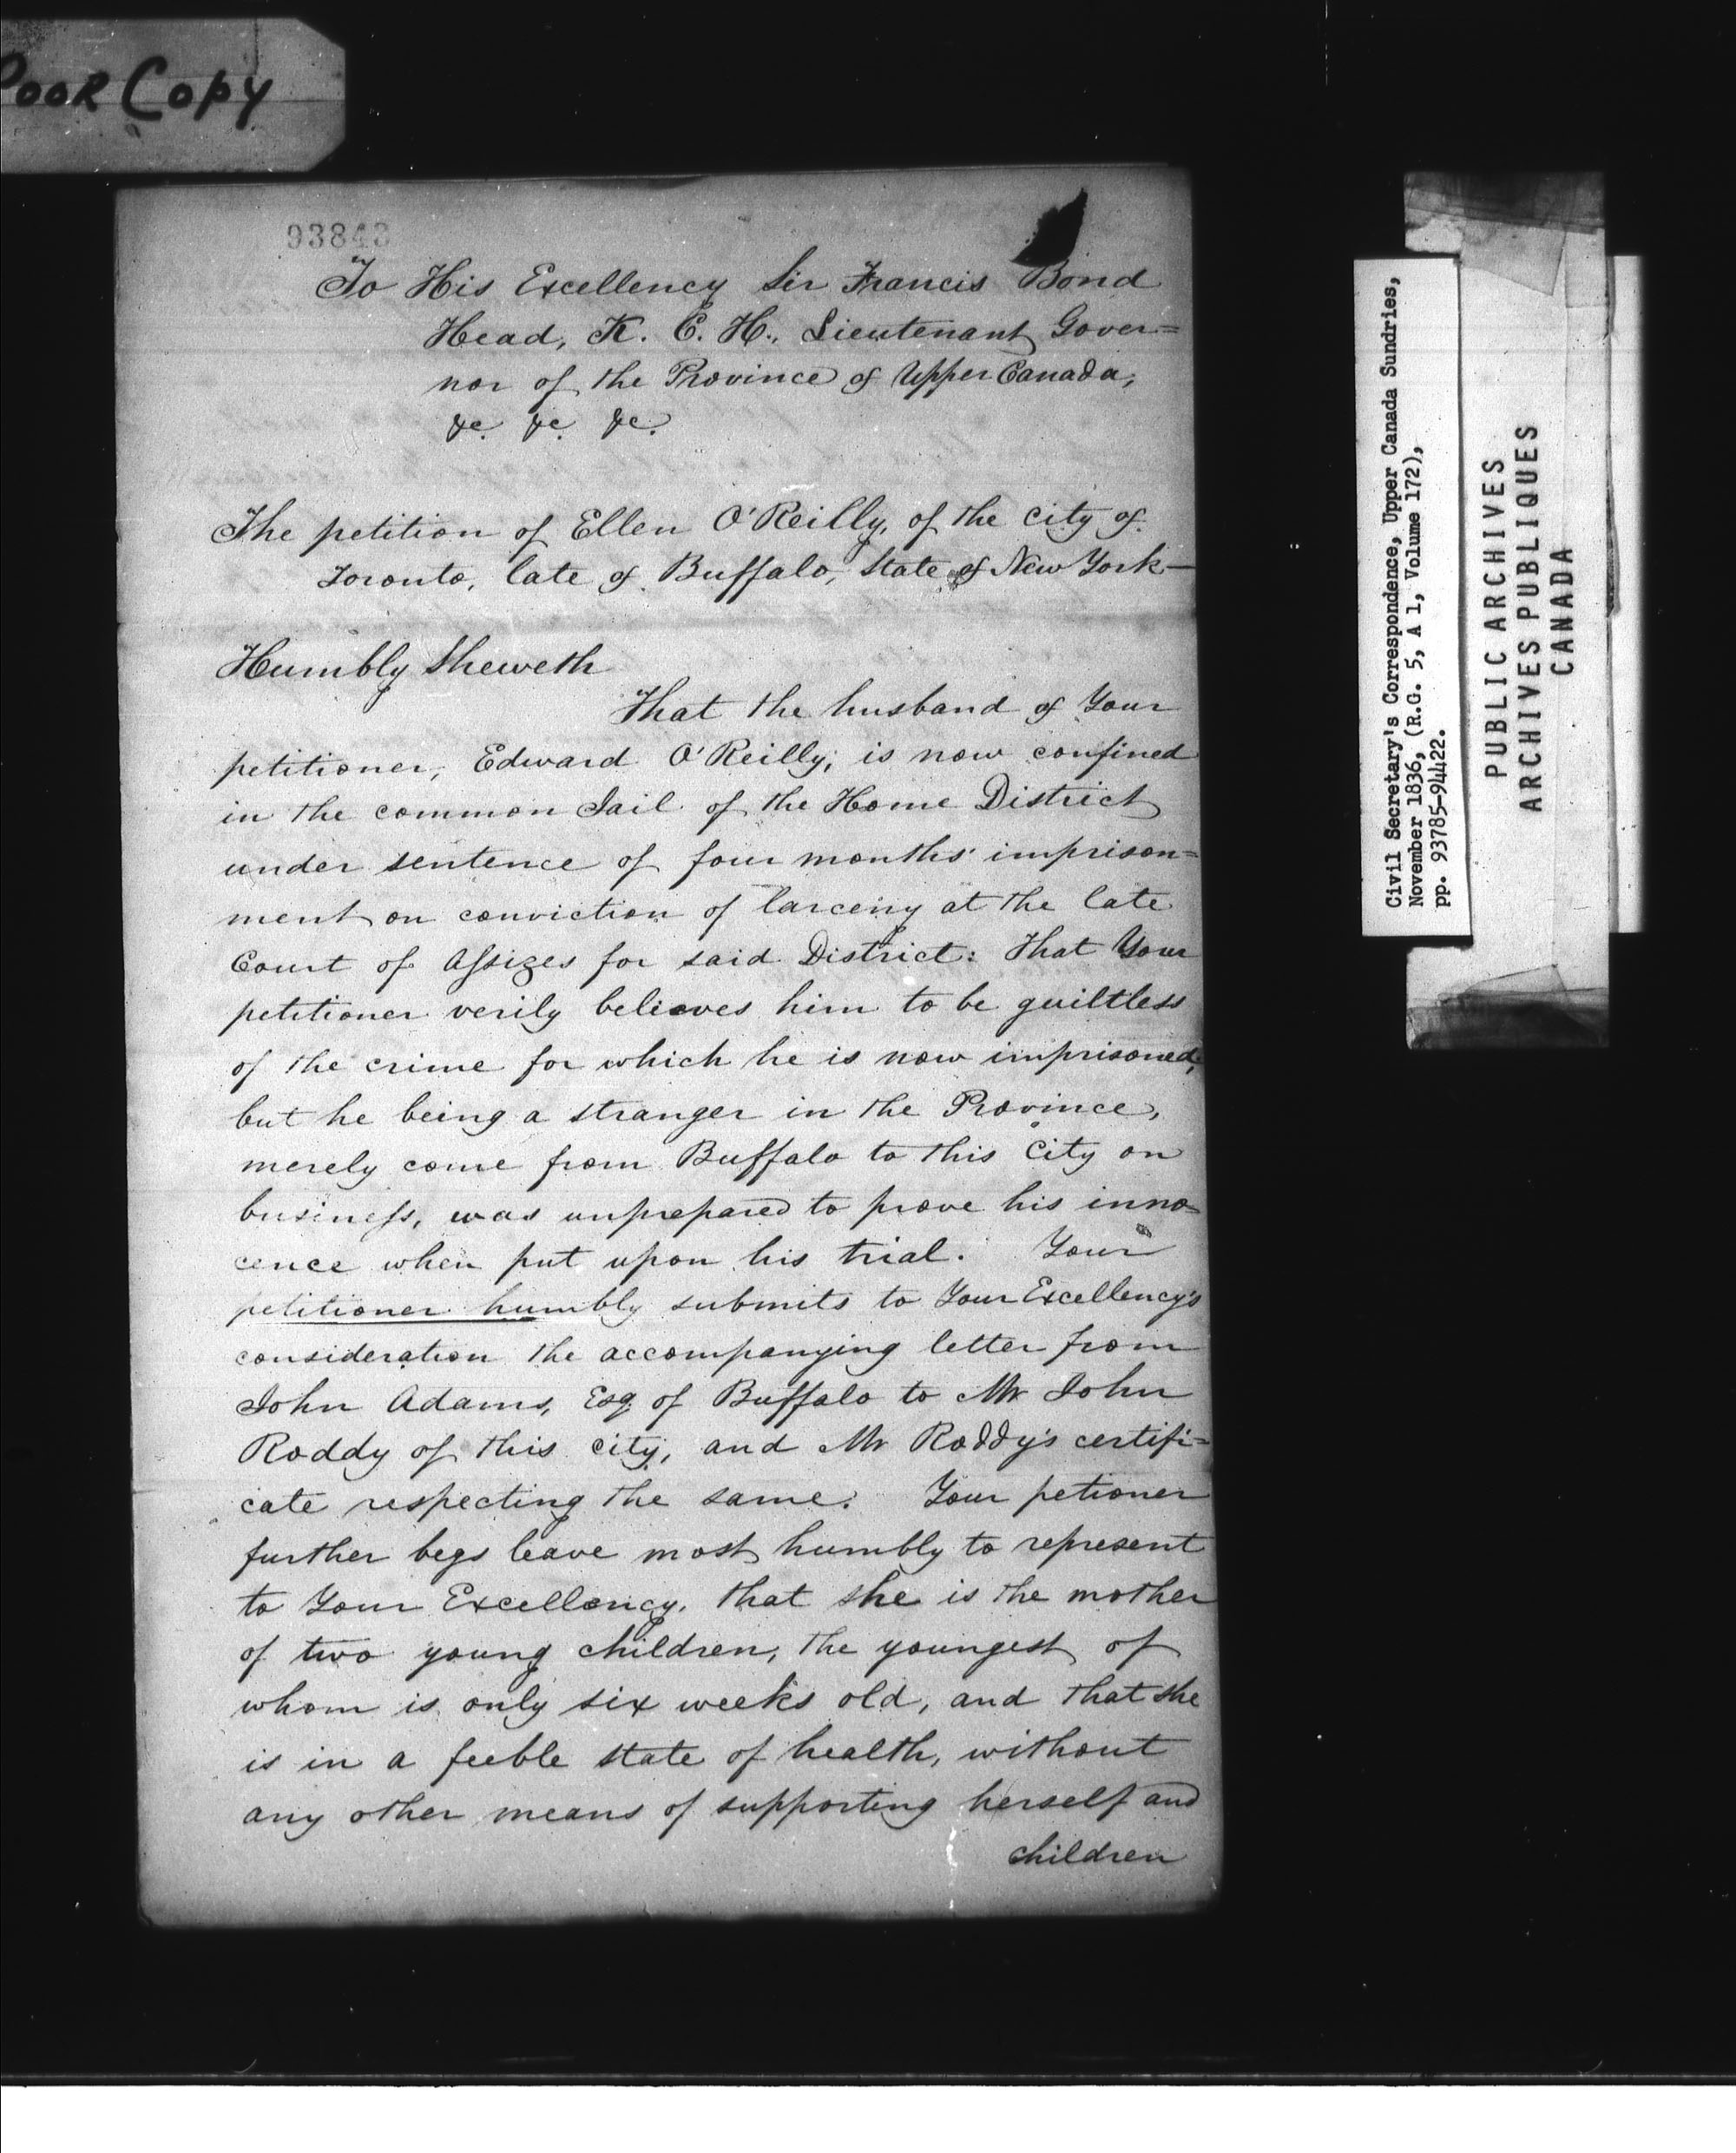 Poor Copy
93843
To His Excellency Sir Francis Bond
Head, K. C. H., Lieutenant Gover=
nor of the Province of Upper Canada,
&c. &c. &c.
The petition of Ellen O'Reilly, of the city of
Toronto, late of Buffalo, State of New York—
Humbly Sheweth
That the husband of Your
petitioner, Edward O'Reilly, is now confined
in the common Jail of the Home District
under sentence of four months' imprison=
ment on conviction of larceny at the late
Court of Assizes for said District: That Your
petitioner verily believes him to be guiltless
of the crime for which he is now imprisoned,
but he being a stranger in the Province,
merely come from Buffalo to this City on
business, was unprepared to prove his inno=
cence when put upon his trial. Your
petitioner humbly submits to Your Excellency's
consideration the accompanying letter from
John Adams, Esq. of Buffalo to Mr John
Roddy of this city, and Mr Roddy's certifi=
cate respecting the same. Your petioner
further begs leave most humbly to represent
to Your Excellency, that she is the mother
of two young children, the youngest of
whom is only six weeks old, and that she
is in a feeble state of health, without
any other means of supporting herself and
children
Civil Secretary's Correspondence, Upper Canada Sundries,
November 1836, (R.G. 5, A 1, Volume 172),
pp. 93785-94422.
PUBLIC ARCHIVES
ARCHIVES PUBLIQUES
CANADA